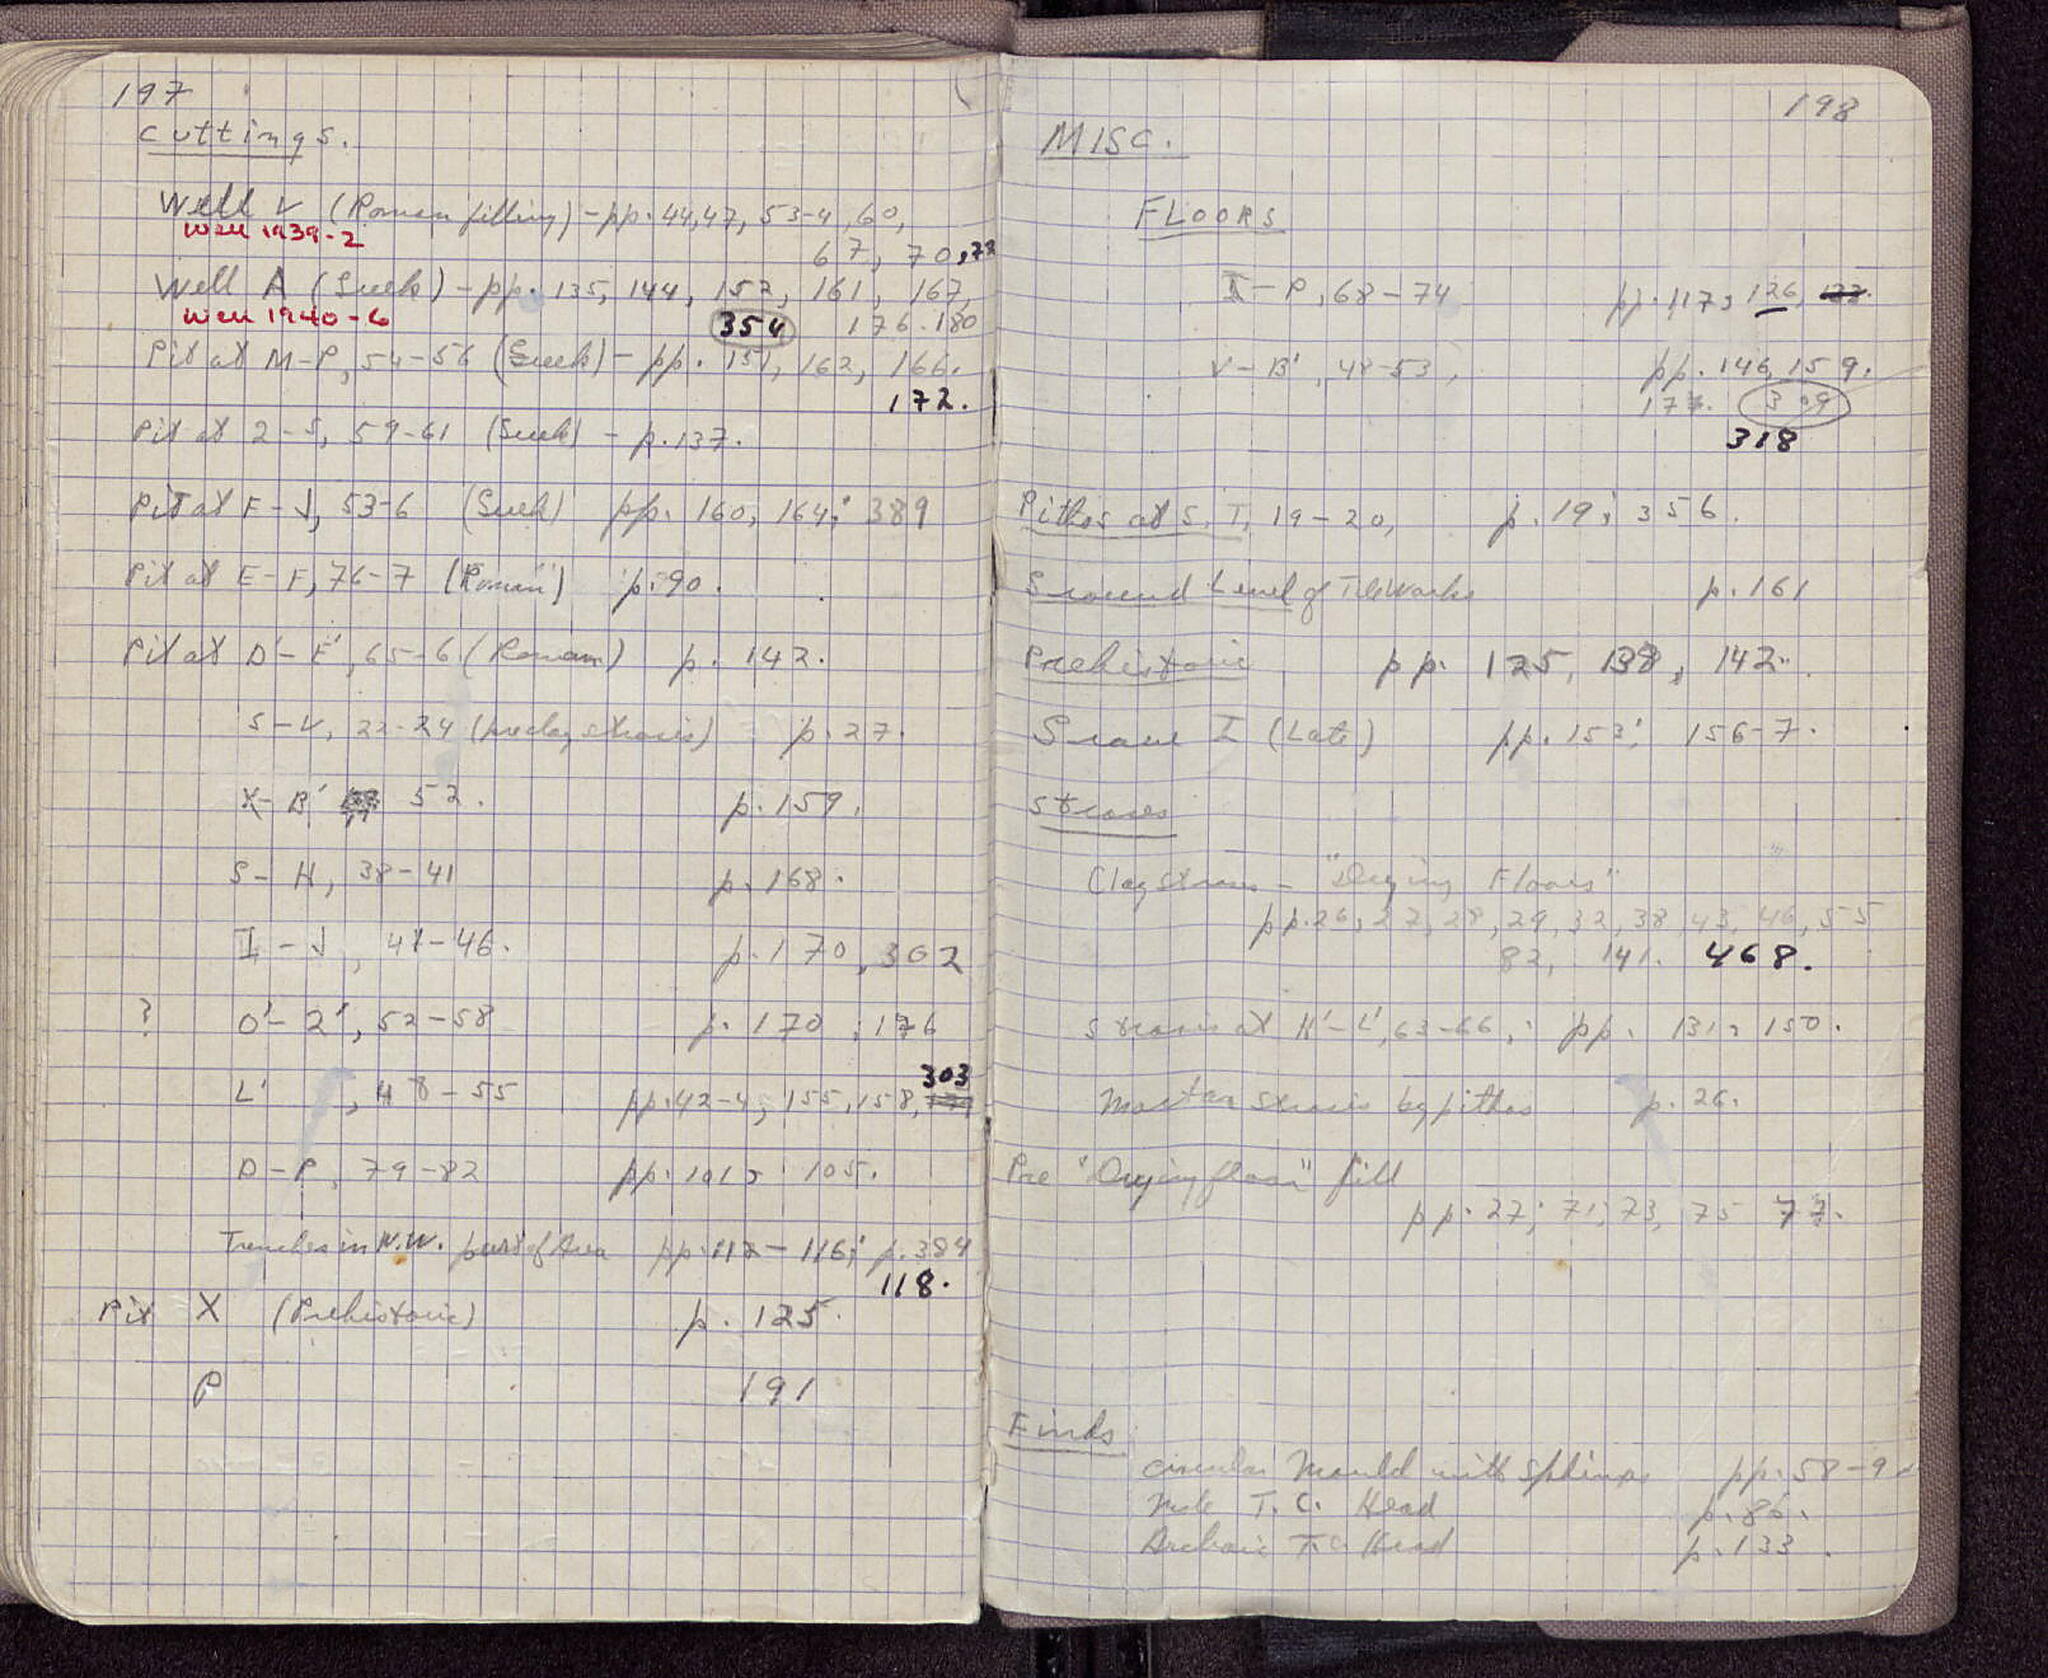 197
Cuttings.
Well V (Roman filling) - pp. 44, 47, 53-4, 60,
Well 1939-2
67, 70, 78
Well A (Greek) - pp. 135, 144, 152, 161, 167,
Well 1940-6
354 176. 180
Pit at M-P, 54-56 (Greek) - pp. 151, 162, 166.
172.
Pit at 2-S, 59-61 (Greek) - p. 137.
Pit at F-J, 53-6 (Greek) pp. 160, 164; 389
Pit at E-F, 76-7 (Roman) p. 90.
Pit at D'-E', 65-6 (Roman) p. 142.
S-V, 22-24 (preclay strosis) p. 27.
X-B' 52. p. 159.
G-H, 38-41 p. 168.
I-J, 41-46. p. 170, 302
? O'-2', 52-58 p. 170; 176
303
L', 48-55 pp. 42-4, 155, 158,
D-P, 79-82 pp. 101, 105.
Trenches in N.W. part of Area pp. 112-116; p. 384
118.
Pit X (Prehistoric) p. 125.
P 191
198
MISC.
FLOORS
I-P, 68-74 pp. 117, 126,
V-B', 48-53, pp. 146, 159.
177. 309
318
Pithos at S, T, 19-20, p. 19; 356.
Ground Level of Tile Works p. 161
Prehistoric pp. 125, 138, 142.
Grave I (Late) pp. 153; 156-7.
Stroses
Clay Stroses - "Drying Floors"
pp. 26, 27, 28, 29, 32, 38, 43, 46, 55
82, 141. 468.
Strosis at H'-L', 63-66, pp. 131, 150.
Mortar Strosis by pithos p. 26.
Pre "Drying floor" fill
pp. 27; 71; 73, 75 77.
Finds
Circular Mould with Sphinx pp. 58-9.
Male T.C. Head p. 86.
Archaic T.C. Head p. 133.